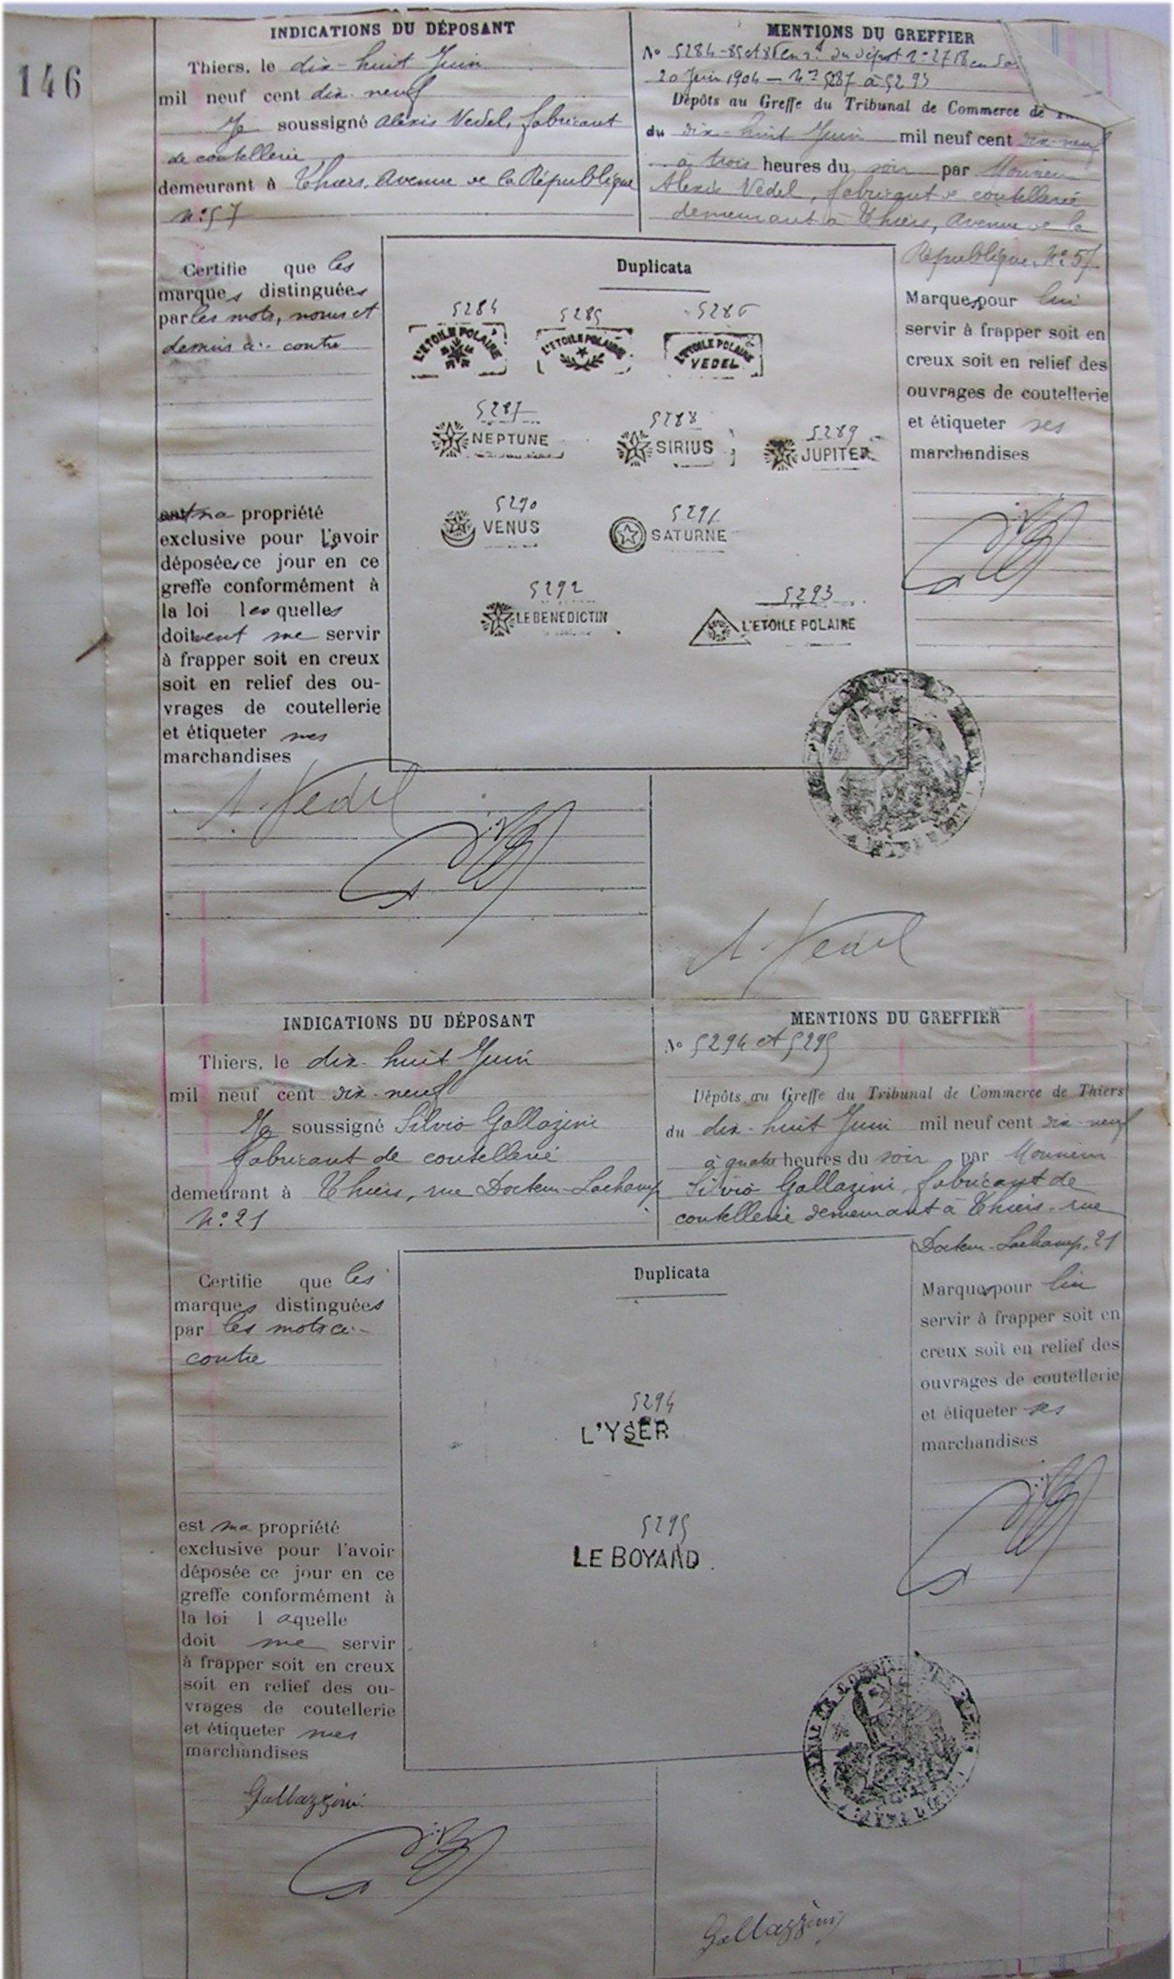 146
INDICATIONS DU DÉPOSANT
Thiers, le dix-huit Juin
mil neuf cent dix-neuf
Je soussigné Alexis Vedel, fabricant
de coutellerie
demeurant à Thiers, Avenue de la République
No 57
MENTIONS DU GREFFIER
No 5284-85 et 86 en du dépôt No 2718 en
20 Juin 1904 — Nos 5287 à 5293
Dépôts au Greffe du Tribunal de Commerce de
du dix-huit Juin mil neuf cent dix-neuf
à trois heures du soir par Monsieur
Alexis Vedel, fabricant de coutellerie
demeurant à Thiers, Avenue de la
République, No 57
Certifie que les
marques distinguées
par les mots, noms et
demis ci-contre
est ma propriété
exclusive pour l'avoir
déposées ce jour en ce
greffe conformément à
la loi lesquelles
doivent me servir
à frapper soit en creux
soit en relief des ou-
vrages de coutellerie
et étiqueter mes
marchandises
A. Vedel
Duplicata
5284 5285 5286
L'ETOILE POLAIRE
L'ETOILE POLAIRE
L'ETOILE POLAIRE
VEDEL
5287 5288 5289
NEPTUNE SIRIUS JUPITER
5290 5291
VENUS SATURNE
5292 5293
LE BENEDICTIN L'ETOILE POLAIRE
Marques pour lui
servir à frapper soit en
creux soit en relief des
ouvrages de coutellerie
et étiqueter ses
marchandises
A. Vedel
INDICATIONS DU DÉPOSANT
Thiers, le dix-huit Juin
mil neuf cent dix-neuf
Je soussigné Silvio Gallazini
fabricant de coutellerie
demeurant à Thiers, rue Docteur-Lachamp
No 21
MENTIONS DU GREFFIER
No 5294 et 5295
Dépôts au Greffe du Tribunal de Commerce de Thiers
du dix-huit Juin mil neuf cent dix-neuf
à quatre heures du soir par Monsieur
Silvio Gallazini, fabricant de
coutellerie demeurant à Thiers, rue
Docteur-Lachamp, 21
Certifie que les
marques distinguées
par les mots ci-
contre
est ma propriété
exclusive pour l'avoir
déposée ce jour en ce
greffe conformément à
la loi laquelle
doit me servir
à frapper soit en creux
soit en relief des ou-
vrages de coutellerie
et étiqueter mes
marchandises
Gallazzini
Duplicata
5294
L'YSER
5295
LE BOYARD
Marques pour lui
servir à frapper soit en
creux soit en relief des
ouvrages de coutellerie
et étiqueter ses
marchandises
Gallazzini